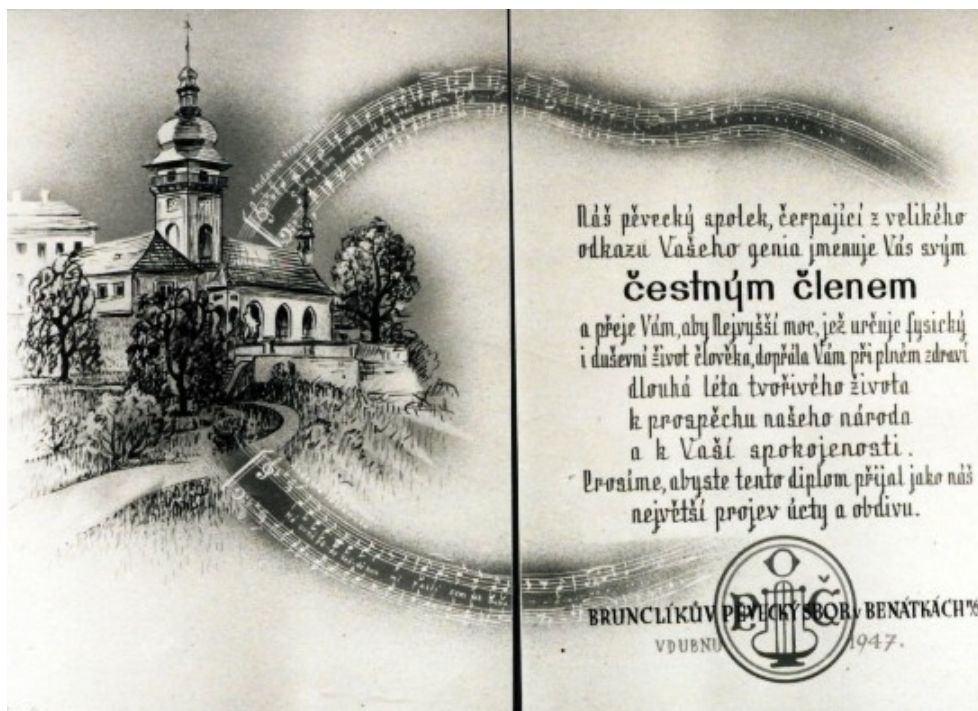 Náš pěvecký spolek, čerpající z velikého
odkazu Vašeho genia jmenuje Vás svým
čestným členem
a přeje Vám, aby Nejvyšší moc, jež určuje fysický
i duševní život člověka, dopřála Vám při plném zdraví
dlouhá léta tvořivého života
k prospěchu našeho národa
a k Vaší spokojenosti.
Prosíme, abyste tento diplom přijal jako náš
největší projev úcty a obdivu.
P O Č
BRUNCLÍKŮV PĚVECKÝ SBOR v BENÁTKÁCH n/J
V DUBNU 1947.